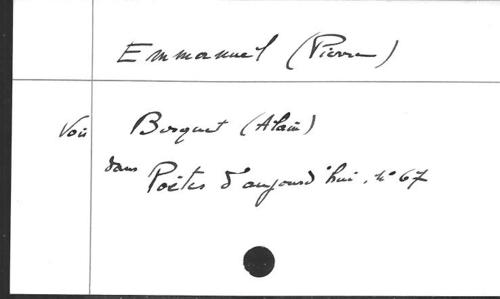 Emmanuel (Pierre)
Voir Bosquet (Alain)
dans Poètes d'aujourd'hui, n° 67